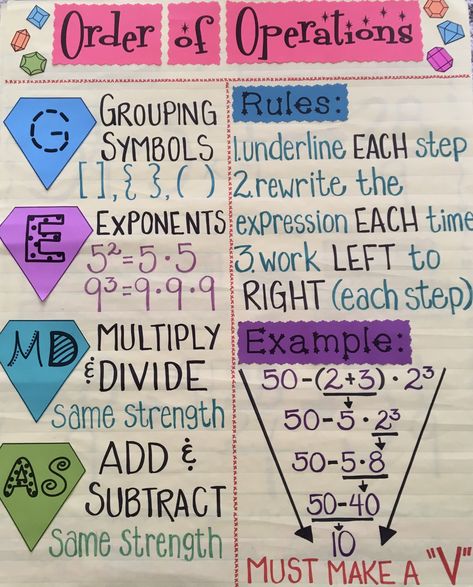 Order of Operations
G
GROUPING
SYMBOLS
[ ], { }, ( )
E
EXPONENTS
5² = 5 · 5
9³ = 9 · 9 · 9
MD
MULTIPLY
& DIVIDE
Same strength
AS
ADD &
SUBTRACT
Same strength
Rules:
1. underline EACH step
2. rewrite the
expression EACH time
3. work LEFT to
RIGHT (each step)
Example:
50-(2+3) · 2³
50-5 · 2³
50-5·8
50-40
10
MUST MAKE A "V"